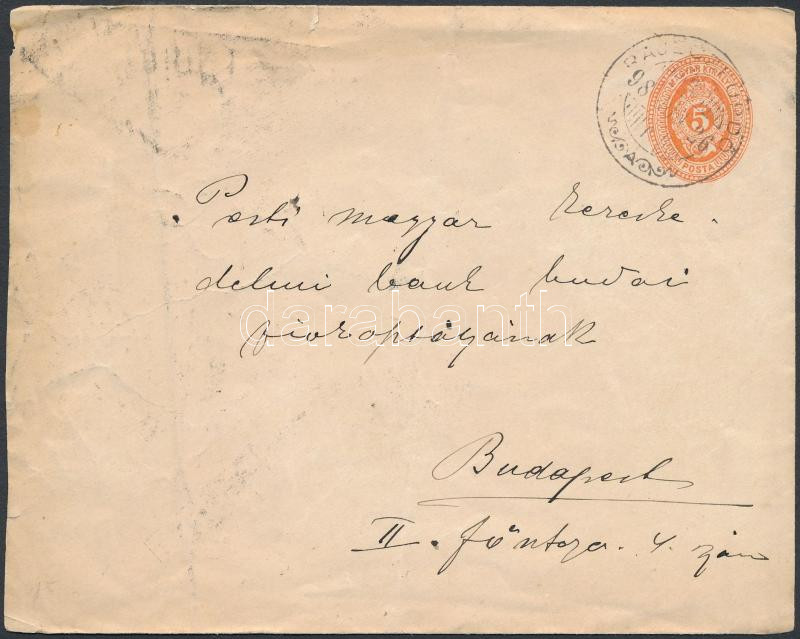 98
MAGYAR KIR.
5
POSTA
Pesti magyar kereske-
delmi bank budai
fiókoptályának
darabanth
Budapest
II. főutcza. 4. szám